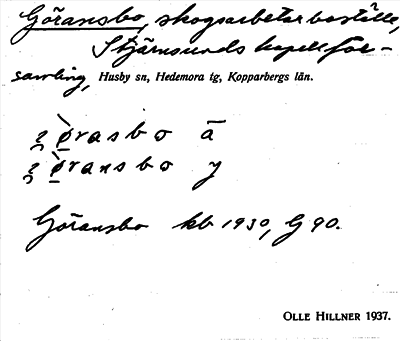 Göransbo, skogsarbetarboställe,
Stjärnsunds kapellför-
samling, Husby sn, Hedemora tg, Kopparbergs län.
ʒ̀ørasbo ā
ʒ̀øransbo y
Göransbo kb 1930, G 90.
OLLE HILLNER 1937.